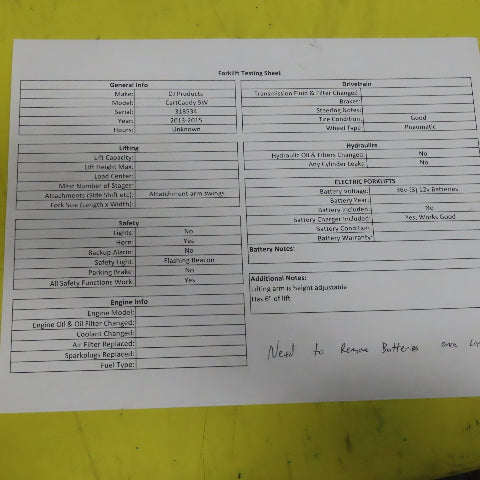 Forklift Testing Sheet
General Info
Make: DJ Products
Model: CartCaddy 5W
Serial: 318934
Year: 2013-2015
Hours: Unknown
Lifting
Lift Capacity:
Lift Height Max:
Load Center:
Mast Number of Stages:
Attachments (Side Shift etc): Attatchment arm swings
Fork Size (Length x Width):
Safety
Lights: No
Horn: Yes
Backup Alarm: No
Safety Light: Flashing Beacon
Parking Brake: No
All Safety Functions Work: Yes
Engine Info
Engine Model:
Engine Oil & Oil Filter Changed:
Coolant Changed:
Air Filter Replaced:
Sparkplugs Replaced:
Fuel Type:
Drivetrain
Transmission Fluid & Filter Changed:
Brakes:
Steering Notes:
Tire Condition: Good
Wheel Type: Pneumatic
Hydraulics
Hydraulic Oil & Filters Changed: No
Any Cylinder Leaks: No
ELECTRIC FORKLIFTS
Battery Voltage: 36v (3) 12v Batteries
Battery Year:
Battery Included: No
Battery Charger Included: Yes, Works Good
Battery Condition:
Battery Warranty:
Battery Notes:
Additional Notes:
Lifting arm is height adjustable
Has 6" of lift
Need to Remove Batteries once